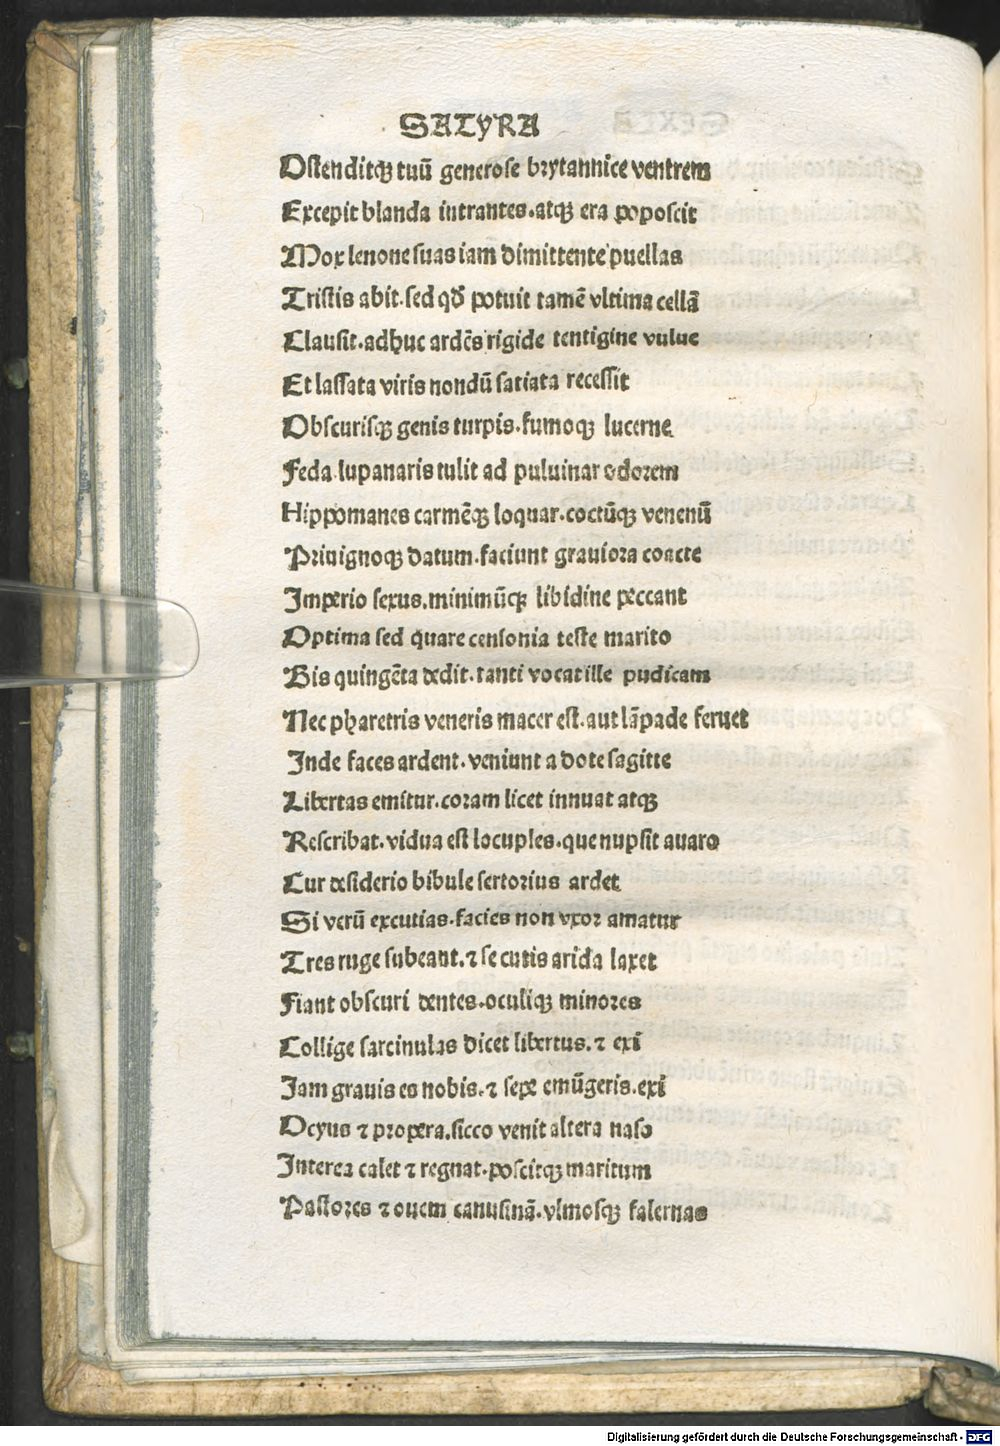 SATYRA
Ostenditqꝫ tuū generose brytannice ventrem
Excepit blanda intrantes.atqꝫ era poposcit
Mox lenone suas iam dimittente puellas
Tristis abit.sed qđ potuit tamē vltima cellā
Clausit.adhuc ardēs rigide tentigine vulue
Et lassata viris nondū satiata recessit
Obscurisqꝫ genis turpis.fumoqꝫ lucerne
Feda.lupanaris tulit ad puluinar odorem
Hippomanes carmēqꝫ loquar.coctūqꝫ venenū
Priuignoqꝫ datum.faciunt grauiora coacte
Imperio sexus.minimūqꝫ libidine peccant
Optima sed quare censonia teste marito
Bis quingēta dedit.tanti vocat ille pudicam
Nec pharetris veneris macer est.aut lāpade feruet
Inde faces ardent.veniunt a dote sagitte
Libertas emitur.coram licet innuat atqꝫ
Rescribat.vidua est locuples.que nupsit auaro
Cur desiderio bibule sertorius ardet
Si verū excutias.facies non vxor amatur
Tres ruge subeant.⁊ se cutis arida laxet
Fiant obscuri dentes.oculiqꝫ minores
Collige sarcinulas dicet libertus.⁊ exi
Iam grauis es nobis.⁊ sepe emūgeris.exi
Ocyus ⁊ propera.sicco venit altera naso
Interea calet ⁊ regnat.poscitqꝫ maritum
Pastores ⁊ ouem canusinā.vlmosqꝫ falernas
Digitalisierung gefördert durch die Deutsche Forschungsgemeinschaft - DFG